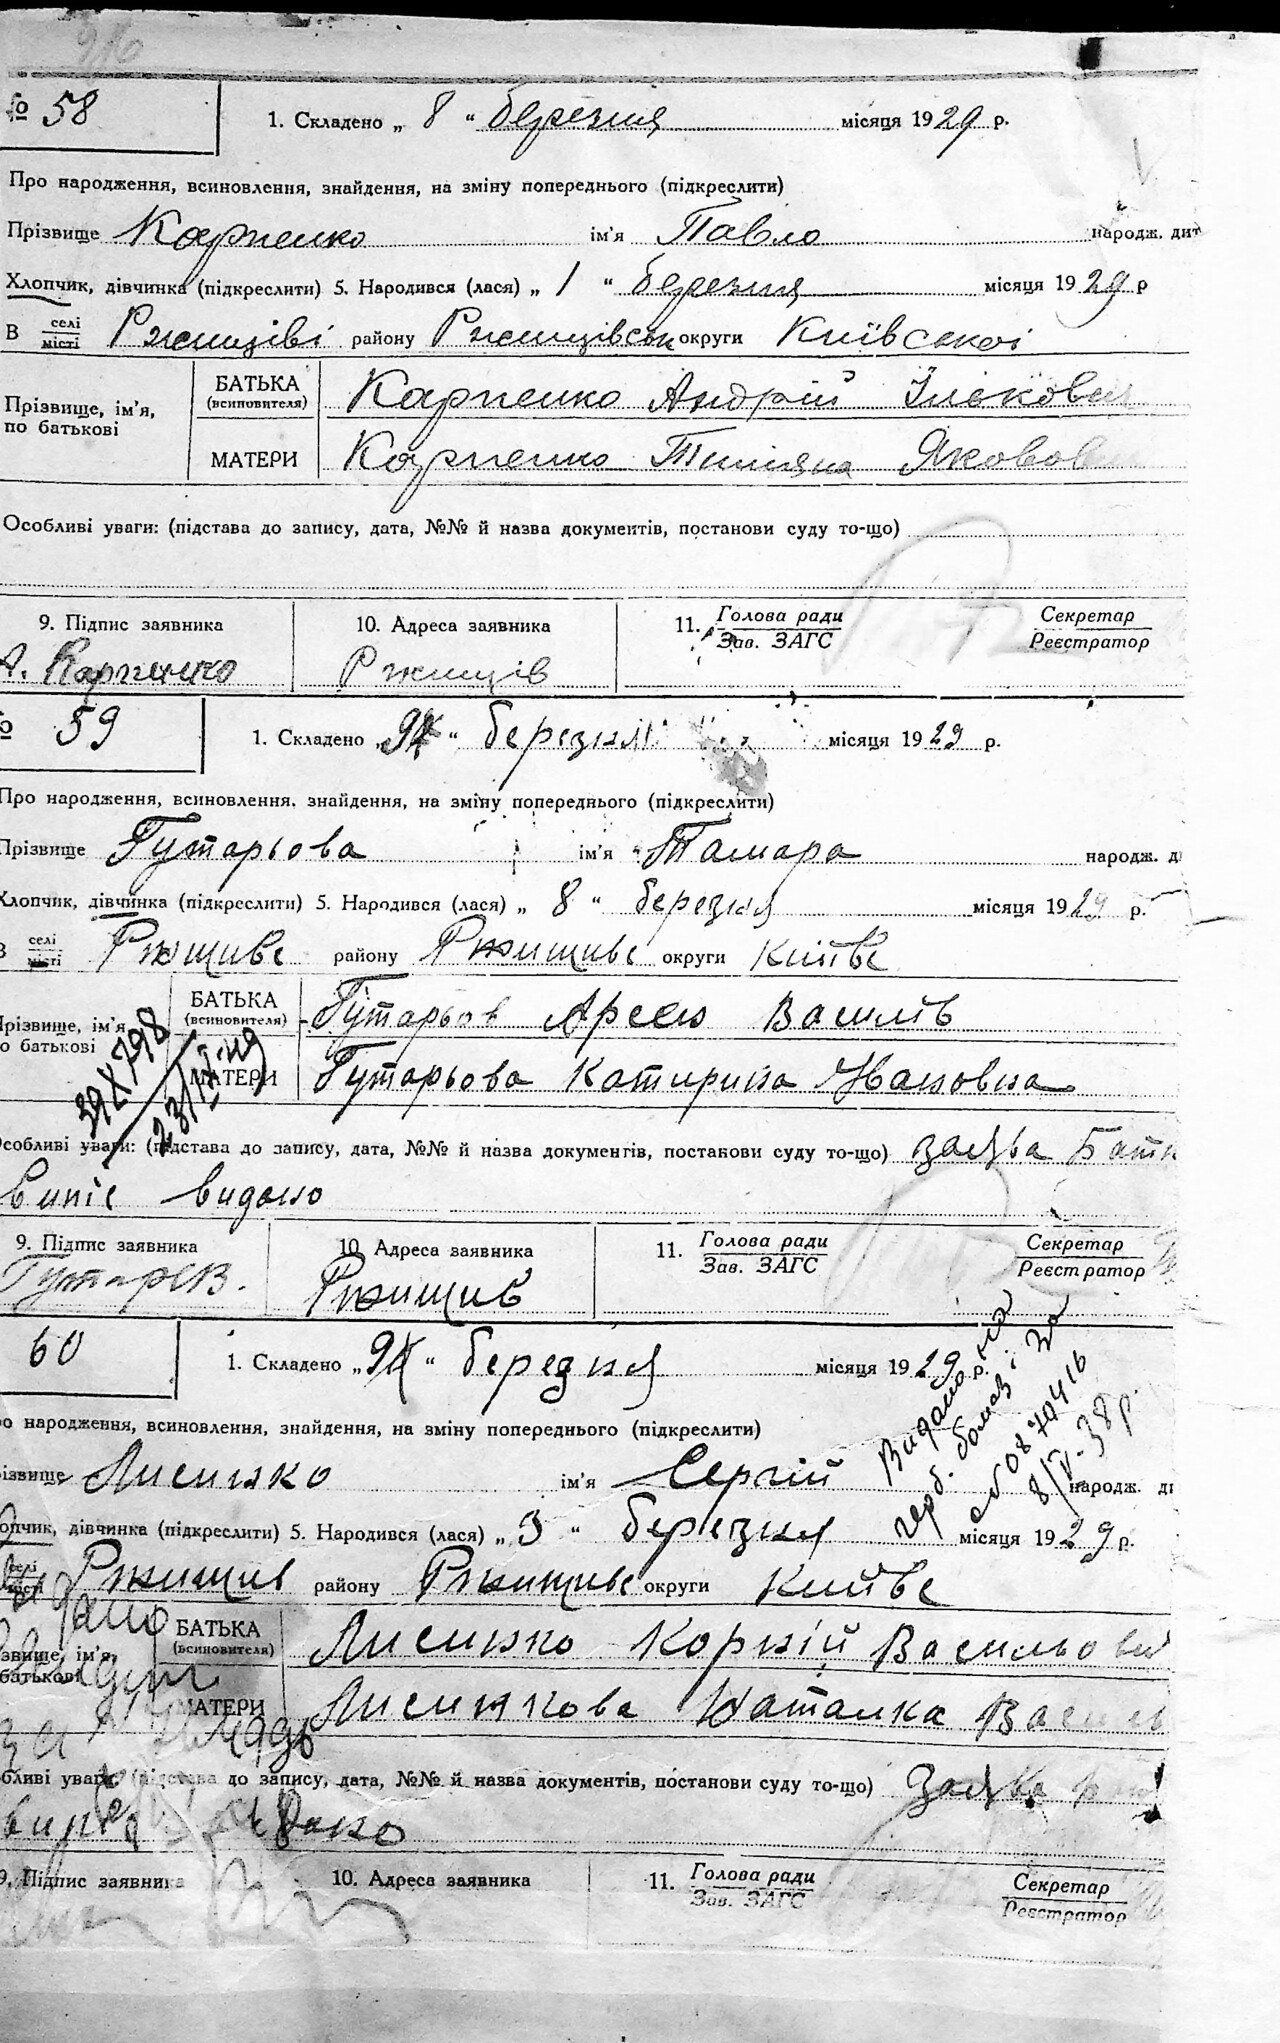 96
№ 58
1. Складено „ 8 “ березня місяця 1929 р.
Про народження, всиновлення, знайдення, на зміну попереднього (підкреслити)
Прізвище Карпенко ім'я Павло народж. дит
Хлопчик, дівчинка (підкреслити) 5. Народився (лася) „ 1 “ березня місяця 1929 р
В селі місті Ржищіві району Ржищівськ округи Київської
Прізвище, ім'я, по батькові
БАТЬКА (всиновителя) Карпенко Андрій Ількович
МАТЕРИ Карпенко Тетяна Яковов
Особливі уваги: (підстава до запису, дата, №№ й назва документів, постанови суду то-що)
9. Підпис заявника 10. Адреса заявника 11. Голова ради Зав. ЗАГС Секретар Реєстратор
А. Карпенко Ржищів
№ 59
1. Складено „ 9 “ березня місяця 1929 р.
Про народження, всиновлення, знайдення, на зміну попереднього (підкреслити)
Прізвище Гутарьова ім'я Тамара народж. д
Хлопчик, дівчинка (підкреслити) 5. Народився (лася) „ 8 “ березня місяця 1929 р.
В селі місті Ржищивс району Ржищивс округи Київс
Прізвище, ім'я по батькові
БАТЬКА (всиновителя) Гутарьов Арсен Василів
МАТЕРИ Гутарьова Катирина Ивановна
Особливі уваги: (підстава до запису, дата, №№ й назва документів, постанови суду то-що) заява Батьк
Випіс видано
9. Підпис заявника 10. Адреса заявника 11. Голова ради Зав. ЗАГС Секретар Реєстратор
Гутарєв. Ржищив
60
1. Складено „ 9 “ березня місяця 1929 р.
о народження, всиновлення, знайдення, на зміну попереднього (підкреслити)
різвище Лисинко ім'я Сергій народж. ди
опчик, дівчинка (підкреслити) 5. Народився (лася) „ 3 “ березня місяця 1929 р.
селі місті Ржищив району Ржищивс округи Київс
звище, ім'я, батькові
БАТЬКА (всиновителя) Лисинко Корній Васильови
МАТЕРИ Лисинкова Наталка Василь
бливі уваги: (підстава до запису, дата, №№ й назва документів, постанови суду то-що) Заява
видано
9. Підпис заявника 10. Адреса заявника 11. Голова ради Зав. ЗАГС Секретар Реєстратор
Видано на
герб. 
087416
8/V-38р.